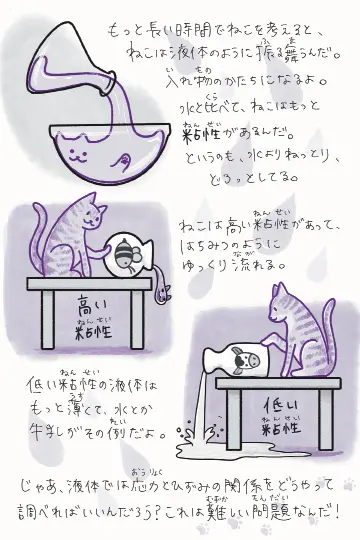 もっと長い時間でねこを考えると、
ねこは液体のように振る舞うんだ。
入れ物のかたちになるよ。
水と比べて、ねこはもっと
粘性があるんだ。
というのも、水よりねっとり、
どろっとしてる。
ねこは高い粘性があって、
はちみつのように
ゆっくり流れる。
高い
粘性
低い粘性の液体は
もっと薄くて、水とか
牛乳がその例だよ。
低い
粘性
じゃあ、液体では応力とひずみの関係をどうやって
調べればいいんだろう？これは難しい問題なんだ！